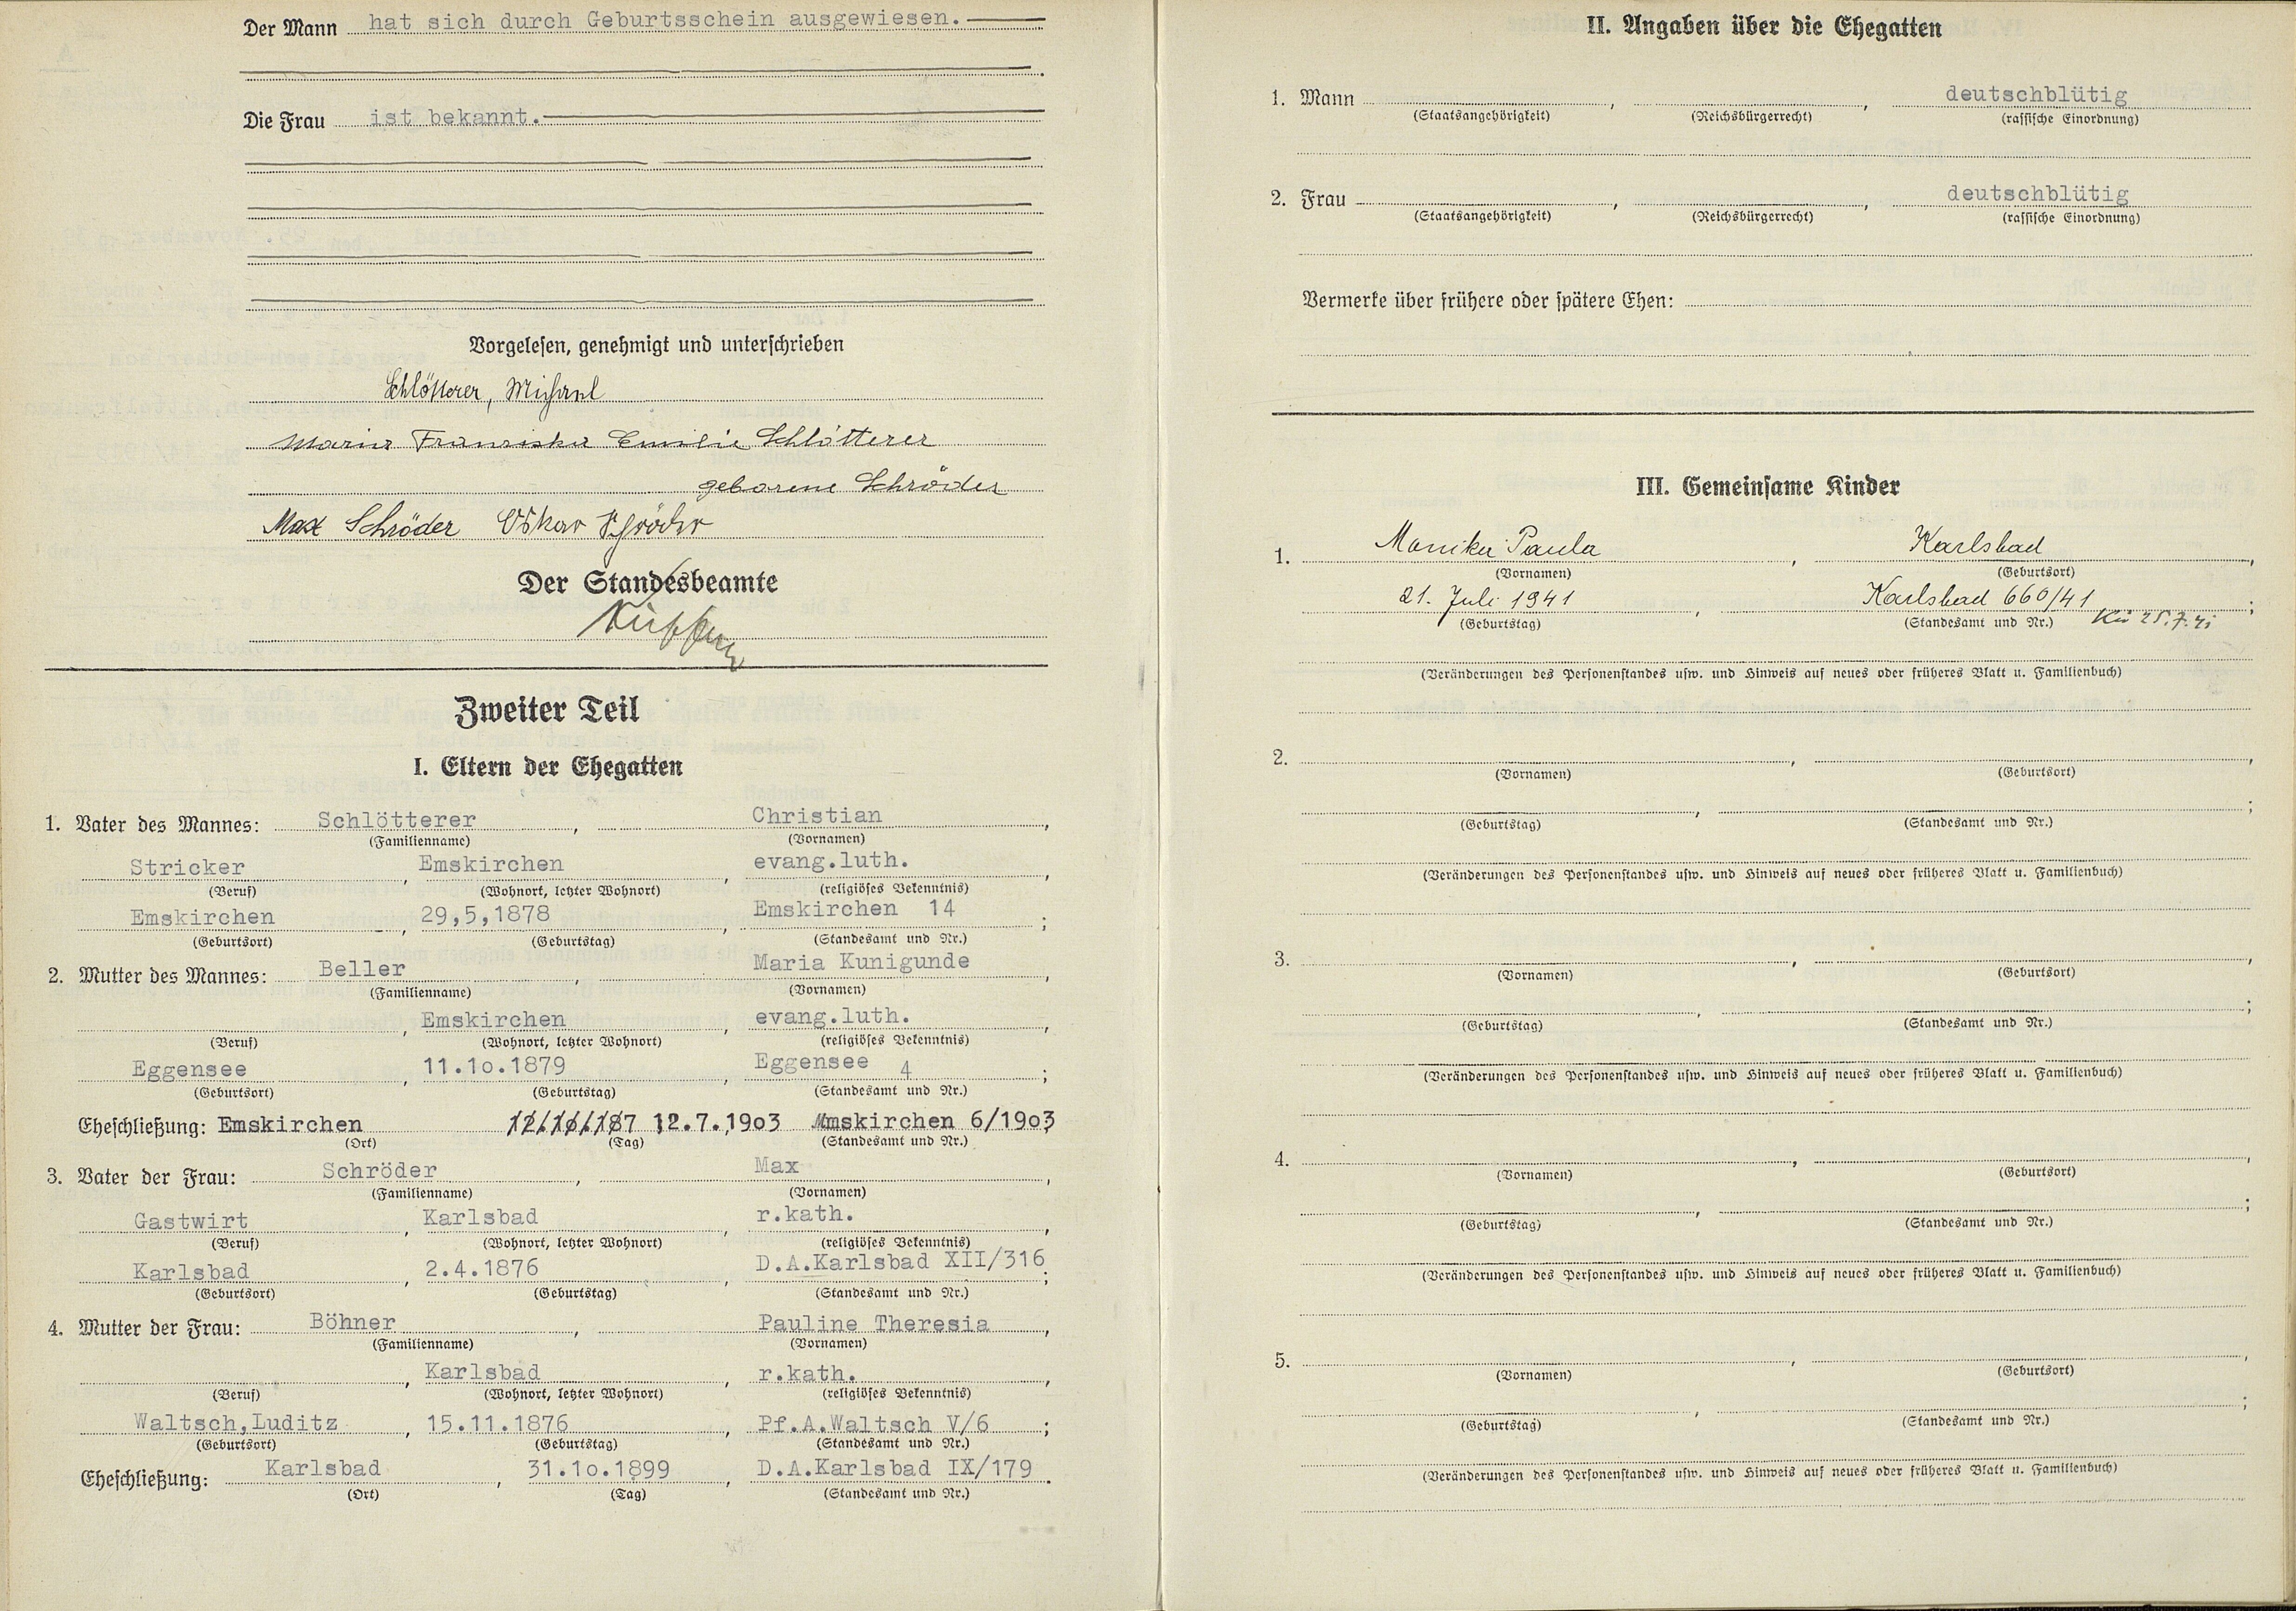 Der Mann hat sich durch Geburtsschein ausgewiesen.
Die Frau ist bekannt.
Vorgelesen, genehmigt und unterschrieben
Schlötterer, Michael
Maria Franziska Emilie Schlötterer
geborene Schröder
Max Schröder Oskar Schröder
Der Standesbeamte
Zweiter Teil
I. Eltern der Ehegatten
1. Vater des Mannes: Schlötterer, Christian,
(Familienname) (Vornamen)
Stricker, Emskirchen, evang.luth.,
(Beruf) (Wohnort, letzter Wohnort) (religiöses Bekenntnis)
Emskirchen, 29,5,1878, Emskirchen 14;
(Geburtsort) (Geburtstag) (Standesamt und Nr.)
2. Mutter des Mannes: Beller, Maria Kunigunde,
(Familienname) (Vornamen)
, Emskirchen, evang.luth.,
(Beruf) (Wohnort, letzter Wohnort) (religiöses Bekenntnis)
Eggensee, 11.1o.1879, Eggensee 4;
(Geburtsort) (Geburtstag) (Standesamt und Nr.)
Eheschließung: Emskirchen 12.7.19o3 Emskirchen 6/19o3
(Ort) (Tag) (Standesamt und Nr.)
3. Vater der Frau: Schröder, Max,
(Familienname) (Vornamen)
Gastwirt, Karlsbad, r.kath.,
(Beruf) (Wohnort, letzter Wohnort) (religiöses Bekenntnis)
Karlsbad, 2.4.1876, D.A.Karlsbad XII/316;
(Geburtsort) (Geburtstag) (Standesamt und Nr.)
4. Mutter der Frau: Böhner, Pauline Theresia,
(Familienname) (Vornamen)
, Karlsbad, r.kath.,
(Beruf) (Wohnort, letzter Wohnort) (religiöses Bekenntnis)
Waltsch,Luditz, 15.11.1876, Pf.A.Waltsch V/6;
(Geburtsort) (Geburtstag) (Standesamt und Nr.)
Eheschließung: Karlsbad, 31.1o.1899, D.A.Karlsbad IX/179.
(Ort) (Tag) (Standesamt und Nr.)
II. Angaben über die Ehegatten
1. Mann , , deutschblütig
(Staatsangehörigkeit) (Reichsbürgerrecht) (rassische Einordnung)
2. Frau , , deutschblütig
(Staatsangehörigkeit) (Reichsbürgerrecht) (rassische Einordnung)
Vermerke über frühere oder spätere Ehen:
III. Gemeinsame Kinder
1. Monika Paula, Karlsbad,
(Vornamen) (Geburtsort)
21. Juli 1941, Karlsbad 660/41;
(Geburtstag) (Standesamt und Nr.) Kü 25.7.41
(Veränderungen des Personenstandes usw. und Hinweis auf neues oder früheres Blatt u. Familienbuch)
2. , ,
(Vornamen) (Geburtsort)
, ;
(Geburtstag) (Standesamt und Nr.)
(Veränderungen des Personenstandes usw. und Hinweis auf neues oder früheres Blatt u. Familienbuch)
3. , ,
(Vornamen) (Geburtsort)
, ;
(Geburtstag) (Standesamt und Nr.)
(Veränderungen des Personenstandes usw. und Hinweis auf neues oder früheres Blatt u. Familienbuch)
4. , ,
(Vornamen) (Geburtsort)
, ;
(Geburtstag) (Standesamt und Nr.)
(Veränderungen des Personenstandes usw. und Hinweis auf neues oder früheres Blatt u. Familienbuch)
5. , ,
(Vornamen) (Geburtsort)
, ;
(Geburtstag) (Standesamt und Nr.)
(Veränderungen des Personenstandes usw. und Hinweis auf neues oder früheres Blatt u. Familienbuch)